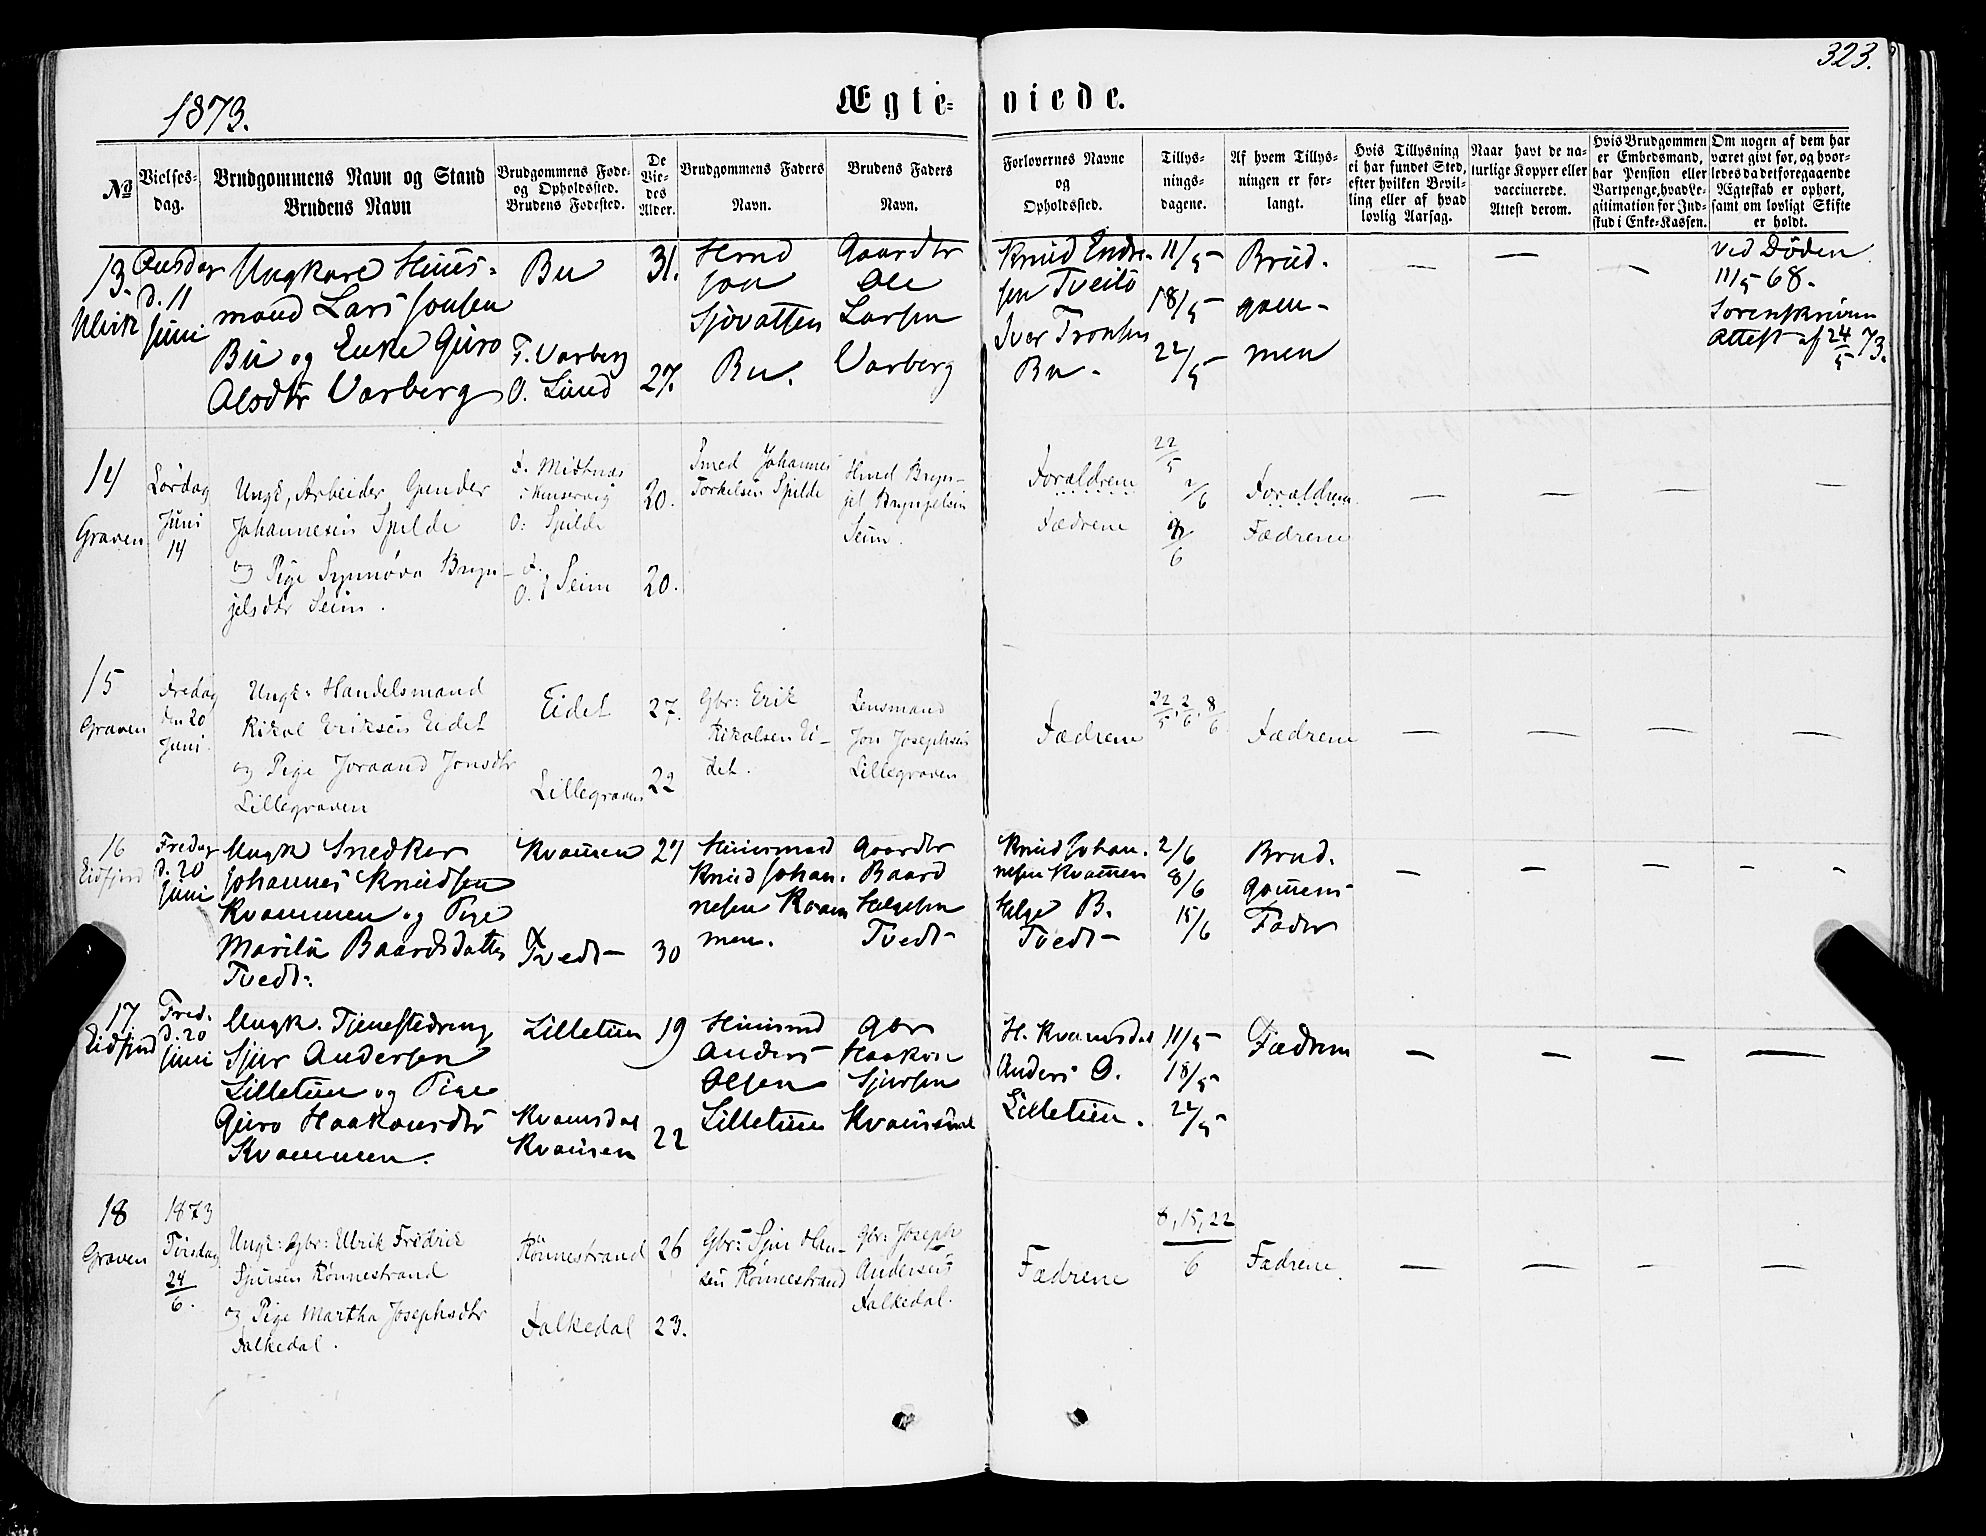 323.
1873.
Ægte= viede.
№
Vielses-
dag.
Brudgommens Navn og Stand
Brudens Navn
Brudgommens Føde-
og Opholdssted.
Brudens Fødested.
De
Vie-
des
Alder.
Brudgommens Faders
Navn.
Brudens Faders
Navn.
Forlovernes Navne
og
Opholdssted.
Tillys-
nings-
dagene.
Af hvem Tillys-
ningen er for-
langt.
Hvis Tillysning
ei har fundet Sted,
efter hvilken Bevil-
ling eller af hvad
lovlig Aarsag.
Naar havt de na-
turlige Kopper eller
vaccinerede.
Attest derom.
Hvis Brudgommen
er Embedsmand,
har Pension eller
Vartpenge, hvad Le-
gitimation for Ind-
skud i Enke-Kassen.
Om nogen af dem har
været givt før, og hvor-
ledes da det foregaaende
Ægteskab er ophørt,
samt om lovligt Skifte
er holdt.
13.
Ulvik
Onsdag
d. 11
Juni
Ungkare Huus-
mand Lars Jonsen
Bu og Enke Guro
Olsdtr Varberg
Bu
F. Varberg
O. Lund
31.
27.
Hmd
Jon
Sjovatsen
Bu.
Gaardbr
Ole
Larsen
Varberg
Knud Endre-
sen Tveito
Iver Tronsen
Bu -
11/5
18/5
22/5
Brud-
gom-
men
— — —
Ved Døden
11/5 68.
Sorenskriveren
Attest af 24/5 73.
14
Graven
Lørdag
Juni
14
Ungk, Arbeider, Gunder
Johannesen Spilde
og Pige Synnøva Bryn-
jelsdtr Seim.
F. Midtnæs
i Kinservig
O: Spilde
F.
O. } Seim
20.
20.
Smed Johannes
Torkelsen Spilde
Hmd Bryn-
jel Brynjelsen
Seim.
Foraldrene
Fædrene
22/5
2/6
8/6
Foraldrene
Fædrene
— — — —
15
Graven
Fredag
den 20
Juni.
Ungk: Handelsmand
Nikol Eriksen Eidet
og Pige Joraand Jonsdtr
Lillegraven
Eidet
Lillegraven
27.
22
Gbr: Erik
Nikolsen Ei-
det.
Lensmand
Jon Josephsen
Lillegraven
Fædrene
22/5, 2/6, 8/6
Fædrene
— — — —
16
Eidfjord
Fredag
d. 20
Juni
Ungk Snedker
Johannes Knudsen
Kvammen og Pige
Marita Baardsdatter
Tvedt
Kvammen
Tvedt
27
30
Huusmand
Knud Johan-
nesen Kvam
men.
Gaardbr
Baard
Helgesen
Tvedt
Knud Johan-
nesen Kvammen
Helge B.
Tvedt
2/6
8/6
15/6
Brud-
gomens
Fader
— — — — -
17
Eidfjord
Fred.
d. 20
Juni
Ungk. Tjenestedreng
Sjur Andersen
Lilletun og Pige
Guro Haakonsdtr
Kvammen.
Lilletun
Kvamsdal
Kvammen
19
22
Huusmd
Anders
Olsen
Lilletun
Gbr
Haakon
Sjursen
Kvamsdal
H. Kvamsdal
Anders O.
Lilletun.
11/5
18/5
22/5
Fædrene
— — — —
18
Graven
1873
Tirsdag
24/6.
Ungk: Gbr: Ulrik Fredrik
Sjursen Rønnestrand
og Pige Martha Josephsdtr
Falkedal.
Rønnestrand
Falkedal
26
23.
Gbr: Sjur Han-
sen Rønnestrand
Gbr: Joseph
Andersen
Falkedal.
Fædrene
8, 15, 22
6
Fædrene
— — — —